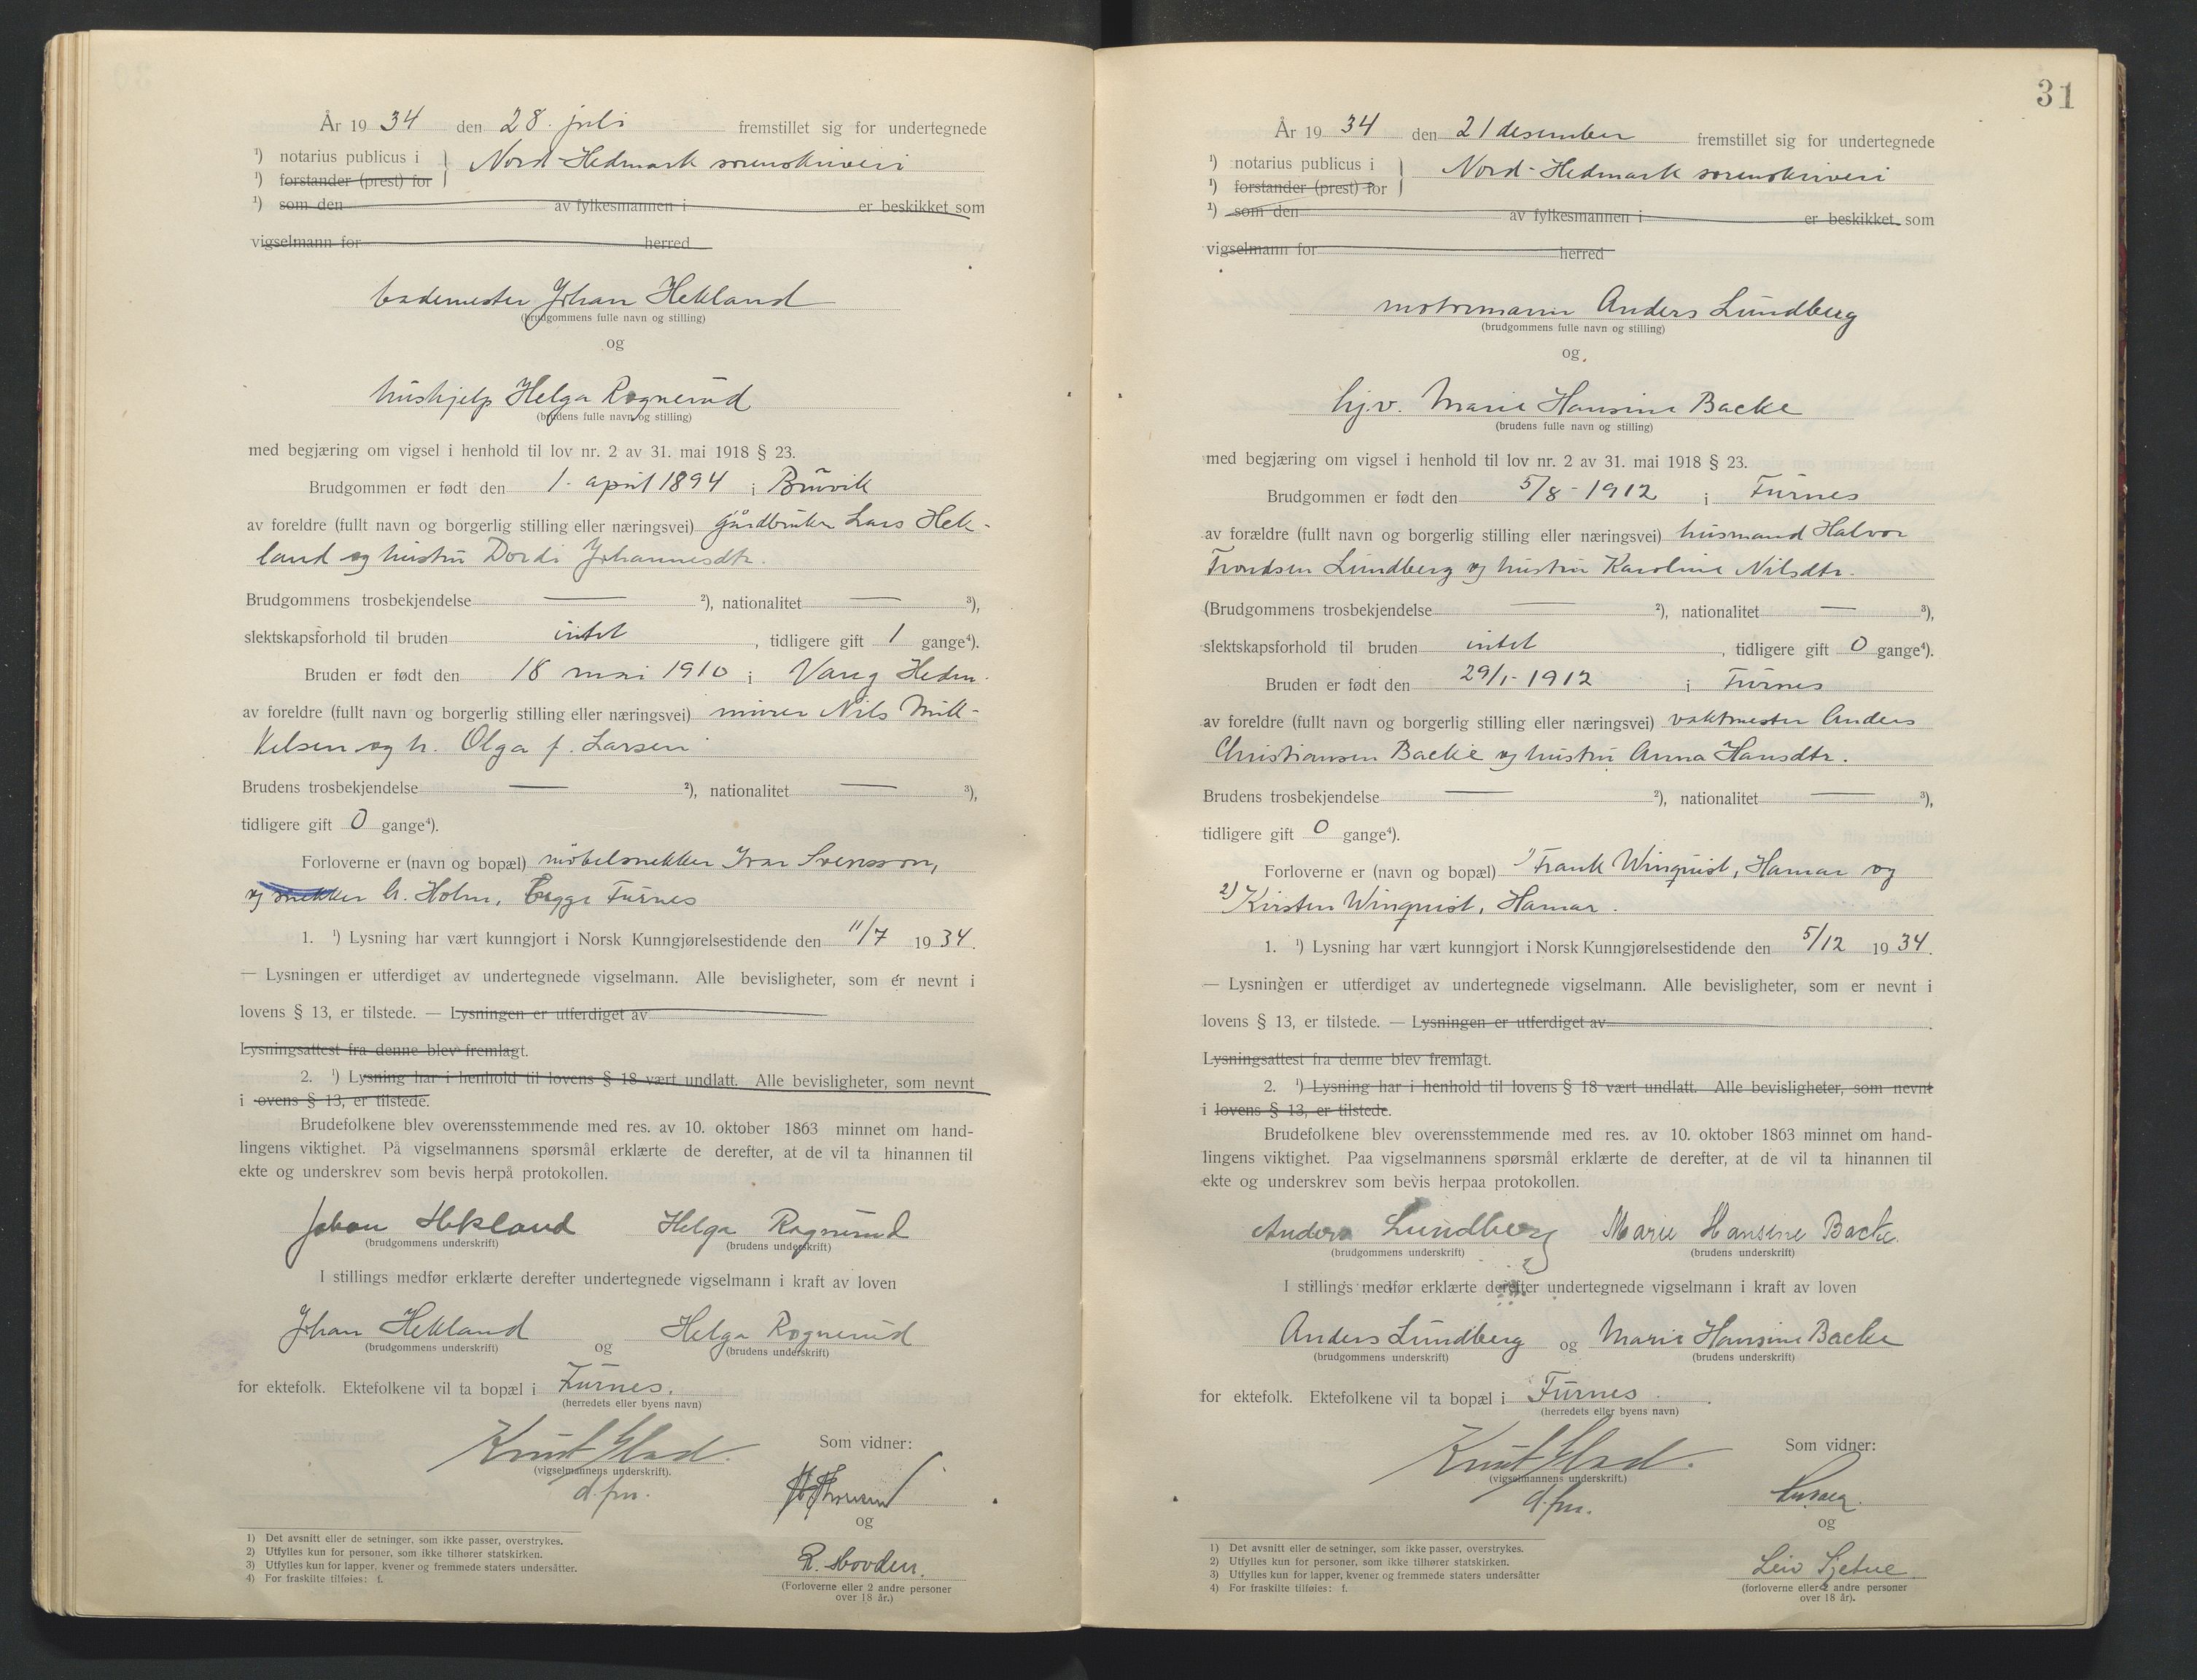 År 19 34 den 28. juli fremstillet sig for undertegnede
¹) notarius publicus i } Nord-Hedmark sorenskriveri
¹) forstander (prest) for
¹) som den av fylkesmannen i er beskikket som
vigselmann for herred
bademester Johan Hekland
(brudgommens fulle navn og stilling)
og
hushjelp Helga Rognerud
(brudens fulle navn og stilling)
med begjæring om vigsel i henhold til lov nr. 2 av 31. mai 1918 § 23.
Brudgommen er født den 1. april 1894 i Bruvik
av foreldre (fullt navn og borgerlig stilling eller næringsvei) gårdbruker Lars Hek-
land og hustru Dordi Johannesdtr.
Brudgommens trosbekjendelse — ²), nationalitet — ³),
slektskapsforhold til bruden intet, tidligere gift 1 gange⁴).
Bruden er født den 18 mai 1910 i Vang Hedm.
av foreldre (fullt navn og borgerlig stilling eller næringsvei) murer Nils Mik-
kelsen og h. Olga f. Larsen
Brudens trosbekjendelse — ²), nationalitet — ³),
tidligere gift 0 gange⁴).
Forloverne er (navn og bopæl) møbelsnekker Ivar Svensson,
og snekker H. Holm, begge Furnes
1. ¹) Lysning har vært kunngjort i Norsk Kunngjørelsestidende den 11/7 1934.
— Lysningen er utferdiget av undertegnede vigselmann. Alle bevisligheter, som er nevnt i
lovens § 13, er tilstede. — Lysningen er utferdiget av
Lysningsattest fra denne blev fremlagt.
2. ¹) Lysning har i henhold til lovens § 18 vært undlatt. Alle bevisligheter, som nevnt
i ovens § 13, er tilstede.
Brudefolkene blev overensstemmende med res. av 10. oktober 1863 minnet om hand-
lingens viktighet. På vigselmannens spørsmål erklærte de derefter, at de vil ta hinannen til
ekte og underskrev som bevis herpå protokollen.
Johan Hekland Helga Rognerud
(brudgommens underskrift) (brudens underskrift)
I stillings medfør erklærte derefter undertegnede vigselmann i kraft av loven
Johan Hekland og Helga Rognerud
(brudgommens underskrift) (brudens underskrift)
for ektefolk. Ektefolkene vil ta bopæl i Furnes.
(herredets eller byens navn)
Knut Glad.
(vigselmannens underskrift).
d.fm.
Som vidner:
og
R. Hovden.
(Forloverne eller 2 andre personer
over 18 år.)
1) Det avsnitt eller de setninger, som ikke passer, overstrykes.
2) Utfylles kun for personer, som ikke tilhører statskirken.
3) Utfylles kun for lapper, kvener og fremmede staters undersåtter.
4) For fraskilte tilføies: f.
31
År 19 34 den 21 desember fremstillet sig for undertegnede
¹) notarius publicus i } Nord-Hedmark sorenskriveri
¹) forstander (prest) for
¹) som den av fylkesmannen i er beskikket som
vigselmann for herred
motormann Anders Lundberg
(brudgommens fulle navn og stilling)
og
hj.v. Marie Hansine Backe
(brudens fulle navn og stilling)
med begjæring om vigsel i henhold til lov nr. 2 av 31. mai 1918 § 23.
Brudgommen er født den 5/8-1912 i Furnes
av forældre (fullt navn og borgerlig stilling eller næringsvei) husmand Halvor
Trondsen Lundberg og hustru Karoline Nilsdtr.
(Brudgommens trosbekjendelse — ²), nationalitet — ³),
slektskapsforhold til bruden intet, tidligere gift 0 gange⁴).
Bruden er født den 29/1-1912 i Furnes
av foreldre (fullt navn og borgerlig stilling eller næringsvei) vaktmester Anders
Christiansen Backe og hustru Anna Hansdtr.
Brudens trosbekjendelse — ²), nationalitet — ³),
tidligere gift 0 gange⁴).
Forloverne er (navn og bopæl) 1) Frank Winquist, Hamar og
2) Kirsten Winquist, Hamar.
1. ¹) Lysning har vært kunngjort i Norsk Kunngjørelsestidende den 5/12 1934.
— Lysningen er utferdiget av undertegnede vigselmann. Alle bevisligheter, som er nevnt i
lovens § 13, er tilstede. — Lysningen er utferdiget av
Lysningsattest fra denne blev fremlagt.
2. ¹) Lysning har i henhold til lovens § 18 vært undlatt. Alle bevisligheter, som nevnt
i lovens § 13, er tilstede.
Brudefolkene blev overensstemmende med res. av 10. oktober 1863 minnet om hand-
lingens viktighet. Paa vigselmannens spørsmål erklærte de derefter, at de vil ta hinannen til
ekte og underskrev som bevis herpaa protokollen.
Anders Lundberg Marie Hansine Backe.
(brudgommens underskrift) (brudens underskrift)
I stillings medfør erklærte derefter undertegnede vigselmann i kraft av loven
Anders Lundberg og Marie Hansine Backe
(brudgommens underskrift) (brudens underskrift)
for ektefolk. Ektefolkene vil ta bopæl i Furnes.
(herredets eller byens navn)
Knut Glad.
(vigselmannens underskrift.)
d.fm.
Som vidner:
og
Leiv
(forloverne eller 2 andre personer
over 18 år).
1) Det avsnitt eller de setninger, som ikke passer, overstrykes.
2) Utfylles kun for personer, som ikke tilhører statskirken.
3) Utfylles kun for lapper, kvener og fremmede staters undersåtter
4) For fraskilte tilføies: f.